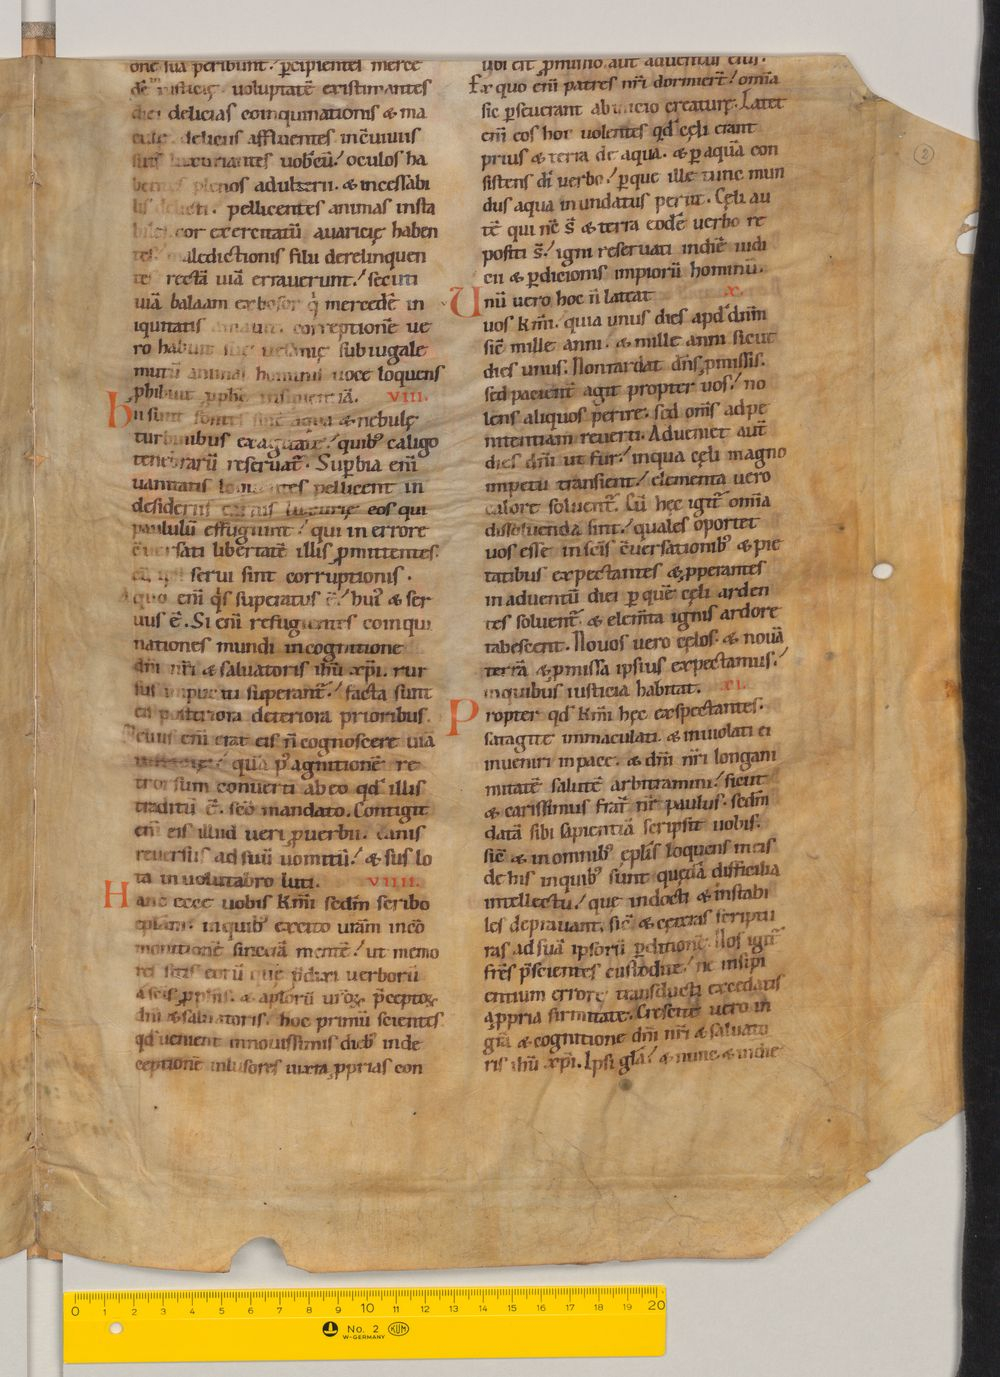 one sua peribunt. ꝑcipientes merce
dē iusticię. uoluptatē existimantes
diei delicias coinquinationis & ma
delicius affluentes in cōuiuiis
suis luxuriantes uobcū.' oculos ha
plenos adulterii. & incessabi
delicti. pellicentes animas insta
biles. cor exercitatū auaricię haben
tes. maledictionis filii derelinquen
tes rectā uiā errauerunt.' secuti
uiā balaam ex bosor q̇ mercedē in
iquitatis amauit. correptionē ue
ro habuit suę uesanię subiugale
mutū animal hominis uoce loquens
ꝓhibuit ꝓphę insipientiā. VIII.
hii sunt fontes sine aqua & nebulę
turbinibus exagitatę.' quib⁊ caligo
tenebrarū reseruat̄. Supbia enī
uanitatis loquentes pellicent in
desideriis carnis luxurię eos qui
paululū effugiunt.' qui in errore
cōuersati libertatē illis ꝓmittentes.
cū ipsi serui sint corruptionis.
A quo enī q̇s superatus ē.' hui⁊ & ser
uus ē. Si enī refugientes coinqui
nationes mundi in cognitione
dn̄i nr̄i & saluatoris ihū xp̄i. rur
sus implicati superant̄.' facta sunt
ea posteriora deteriora prioribus.
Melius enī erat eis n̄ cognoscere uiā
iusticię.' quā p⁊ agnitionē re
trorsum conuerti ab eo qd̄ illis
traditū ē. sc̄o mandato. Contigit
enī eis illud ueri ꝓuerbii. canis
reuersus ad suū uomitū.' & sus lo
ta in uolutabro luti. VIIII.
Hanc ecce uobis Kmī sedm̄ scribo
eplam. in quib⁊ excito urām in cō
monitionē sincerā mentē.' ut memo
res sitis eorū quę p̄dixi uerborū
a sc̄is ꝓph̄is. & ap̄lorū uroꝝ p̄ceptoꝝ
dn̄i & saluatoris. hoc primū scientes
qd̄ uenient in nouissimis dieb⁊ in de
ceptionē inlusores iuxta ꝓprias con
ubi ē ꝓmissio aut aduentus eius.
Ex quo enī patres nr̄i dormiert̄.' om̄ia
sic ꝑseuerant ab inicio creaturę. Latet
enī eos hoc uolentes qd̄ cęli erant
prius & terra de aqua. & ꝑ aquā con
sistens dī uerbo.' ꝑ que ille tunc mun
dus aqua inundatus periit. Cęli au
tē qui nc̄ s̄ & terra eodē uerbo re
positi s̄.' igni reseruati in diē iudi
cii & ꝑdicionis impiorū hominū.
Unū uero hoc n̄ lateat X.
uos Kmī. quia unus dies apd̄ dn̄m
sic̄ mille anni. & mille anni sicut
dies unus. Non tardat dn̄s ꝓmissis.
sed pacient̄ agit propter uos.' no
lens aliquos perire. sed om̄s ad pe
nitentiam reuerti. Adueniet aut̄
dies dn̄i ut fur.' in qua cęli magno
impetu transient.' elementa uero
calore soluent̄. Cū hęc igit̄ om̄ia
dissoluenda sint.' quales oportet
uos esse in sc̄is cōuersationib⁊ & pie
tatibus expectantes & ꝓperantes
in aduentū diei ꝑ quē cęli arden
tes soluent̄. & elem̄ta ignis ardore
tabescent. Nouos uero cęlos. & nouā
terrā & ꝓmissa ipsius expectamus.'
in quibus iusticia habitat. XI.
Propter qd̄ Kmī hęc exspectantes.
satagite immaculati. & inuiolati ei
inueniri in pace. & dn̄i nr̄i longani
mitatē salutē arbitramini.' sicut
& carissimus frat̄ nr̄ paulus. sedm̄
datā sibi sapientiā scripsit uobis.
sic̄ & in omnib⁊ epl̄is loquens in eis
de his in quib⁊ sunt quedā difficilia
intellectu.' que indocti & instabi
les deprauant. sic̄ & ceteras scriptu
ras ad suā ipsorū ꝑditionē. Uos igit̄
fr̄es p̄scientes custodite.' ne insipi
entium errore transducti excedatis
a ꝓpria firmitate. Crescite uero in
grā & cognitione dn̄i nr̄i & saluato
ris ihū xp̄i. Ipsi glā.' & nunc & in die
2
0 1 2 3 4 5 6 7 8 9 10 11 12 13 14 15 16 17 18 19 20
No. 2 KUM
W-GERMANY